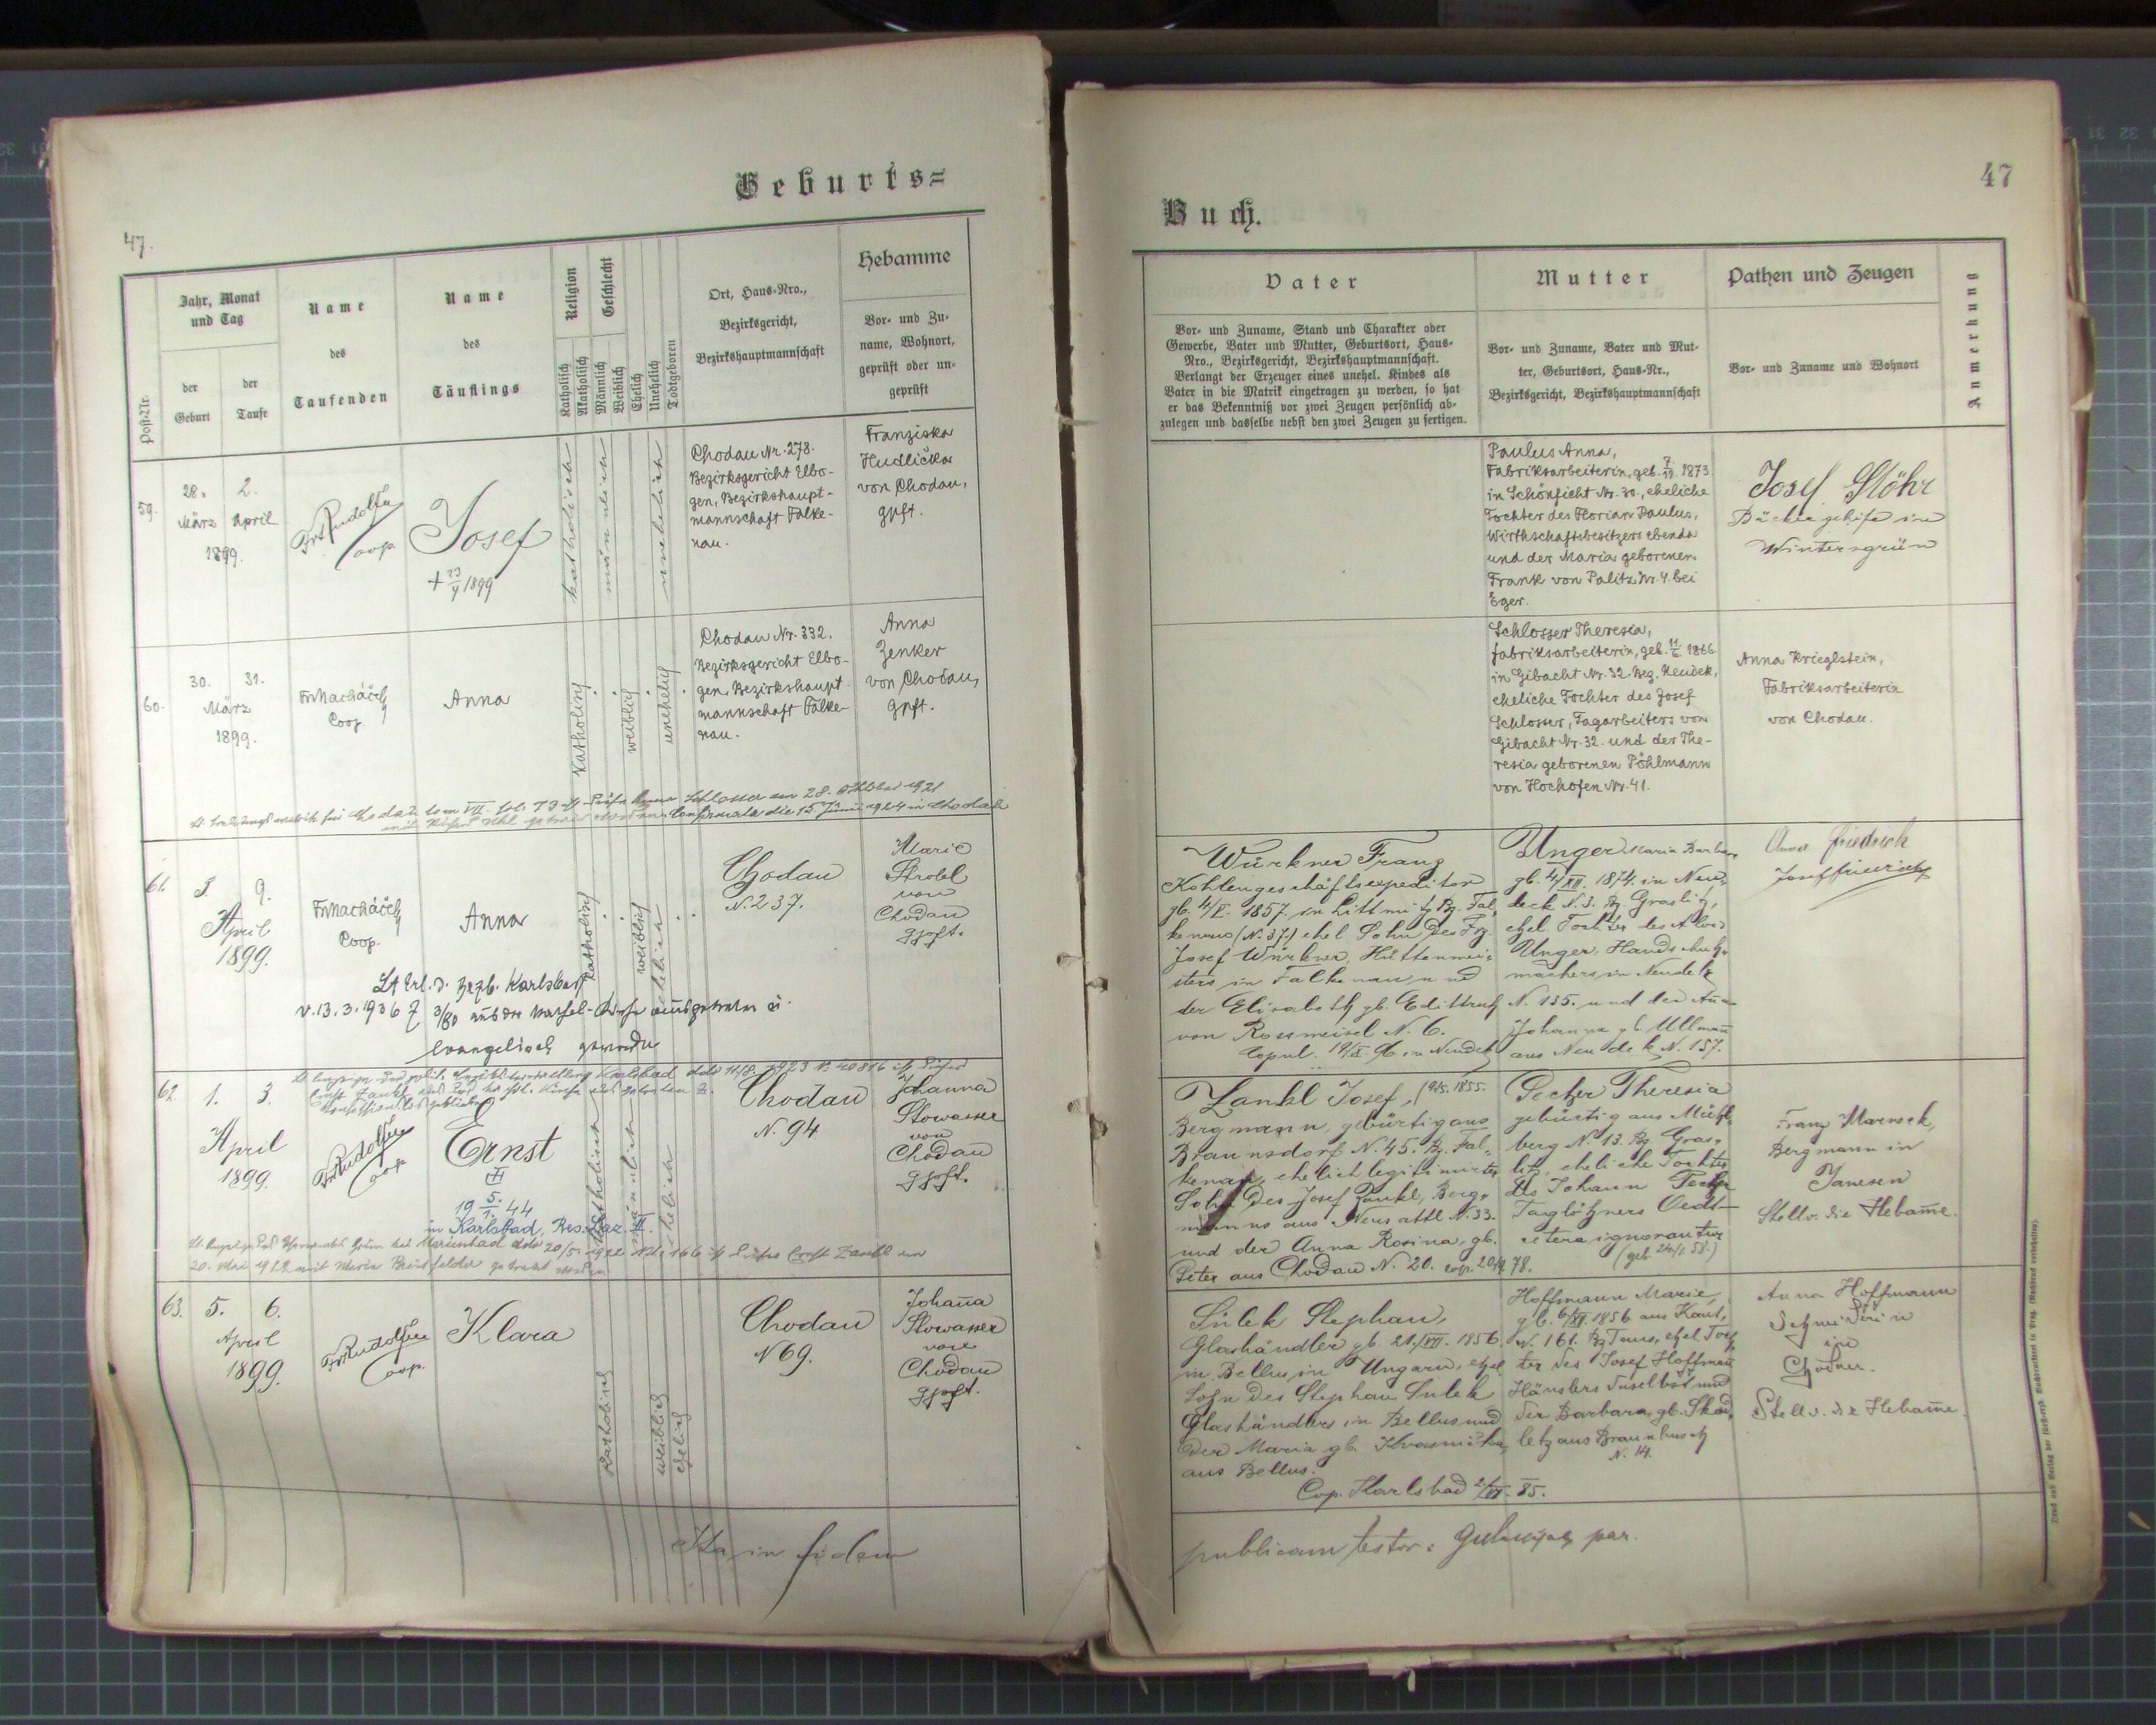 47.
Geburts=
Post-Nr.
Jahr, Monat
und Tag
der
Geburt
der
Taufe
Name
des
Taufenden
Name
des
Täuflings
Religion
Katholisch
Akatholisch
Geschlecht
Männlich
Weiblich
Ehelich
Unehelich
Todtgeboren
Ort, Haus-Nro.,
Bezirksgericht,
Bezirkshauptmannschaft
Hebamme
Vor- und Zu-
name, Wohnort,
geprüft oder un-
geprüft
59.
28. 2.
März April
1899.
Coop.
Josef
+ 23/4 1899
katholisch
männlich
unehelich
Chodau Nr. 278.
Bezirksgericht Elbo-
gen, Bezirkshaupt-
mannschaft Falke-
nau.
Franziska
Hudlička
von Chodau,
gpft.
60.
30. 31.
März
1899.
Fr. Macháček
Coop.
Anna
katholisch
weiblich
unehelich
Chodau Nr. 332.
Bezirksgericht Elbo-
gen, Bezirkshaupt-
mannschaft Falke-
nau.
Anna
Zenker
von Chodau,
gpft.
Anna Schlosser am 28. Oktober 1921
die 15 Juni 1924 in Chodau
61.
3. 9.
April
1899.
Fr. Macháček
Coop.
Anna
katholisch
weiblich
ehelich
Chodau
N. 237.
Marie
Strobl
von
Chodau
gpft.
Lt Erl. d. Bezb. Karlsbad
v. 13. 3. 1936
evangelisch geworden
62.
1. 3.
April
1899.
Coop.
Ernst
5.
19 1. 44
in Karlsbad, Res. Laz. II.
katholisch
männlich
ehelich
Chodau
N. 94
Johanna
Stowasser
von
Chodau
gpft.
20. Mai 1922 mit Maria
63.
5. 6.
April
1899.
Coop.
Klara
katholisch
weiblich
ehelich
Chodau
N 69.
Johanna
Stowasser
von
Chodau
gpft.
Ita in fidem
47
Buch.
Vater
Vor- und Zuname, Stand und Charakter oder
Gewerbe, Vater und Mutter, Geburtsort, Haus-
Nro., Bezirksgericht, Bezirkshauptmannschaft.
Verlangt der Erzeuger eines unehel. Kindes als
Vater in die Matrik eingetragen zu werden, so hat
er das Bekenntniß vor zwei Zeugen persönlich ab-
zulegen und dasselbe nebst den zwei Zeugen zu fertigen.
Mutter
Vor- und Zuname, Vater und Mut-
ter, Geburtsort, Haus-Nr.,
Bezirksgericht, Bezirkshauptmannschaft
Pathen und Zeugen
Vor- und Zuname und Wohnort
Anmerkung
Paulus Anna,
Fabriksarbeiterin, geb. 7/12 1873
in Schönficht Nr. 30, eheliche
Tochter des Florian Paulus,
Wirthschaftsbesitzers ebenda
und der Maria geborenen
Frank von Palitz Nr. 4. bei
Eger.
Josef Stöhr
Bäckergehilfe in
Wintersgrün
Schlosser Theresia,
Fabriksarbeiterin, geb. 11/6 1866
in Gibacht Nr. 32. Bez. Neudek,
eheliche Tochter des Josef
Schlosser, Tagarbeiters von
Gibacht Nr. 32. und der The-
resia geborenen Pöhlmann
von Hochofen Nr. 41.
Anna Krieglstein,
Fabriksarbeiterin
von Chodau.
Würkner Franz
Kohlengeschäftsexpeditor
gb. 4/V. 1857. in Littmitz Bz. Fal-
kenau (N. 37.) ehel Sohn des Frz.
Josef Würkner, Hüttenmei-
sters in Falkenau, und
der Elisabeth gb.
von Rossmeisel N. 6.
Copul. in Neudek
Unger Maria Barbara
gb. 4/XII. 1874. in Neu-
deck N. 3. Bz Graslitz,
ehel. Tochter des Alois
Unger, Handschuh-
machers in Neudek
N. 135. und der Anna
Johanna gb. Ullmann
aus Neudek N. 157.
Anna Friedrich
Josef Friedrich
Zankl Josef, (9/5. 1855.
Bergmann, gebürtig aus
Braunsdorf N. 45. Bz. Fal-
kenau, ehelich legitimirter
Sohn des Josef Zankl, Berg-
manns aus Neusattl N. 33.
und der Anna Rosina, gb.
Peter aus Chodau N. 20. cop. 78.
Pecher Theresia
gebürtig aus Mühl-
berg N. 13. Bz Gras-
litz, eheliche Tochter
des Johann Pecher
Taglöhners
cetera ignorantur
(geb. 58.)
Franz
Bergmann in
Janesen
Stellv. die Hebamme.
Sulek Stephan,
Glashändler gb. 21./VII. 1856.
in Bellus in Ungarn, ehel.
Sohn des Stephan Sulek
Glashändlers in Bellus und
der Maria gb.
aus Bellus.
Cop. Karlsbad 85.
Hoffmann Marie,
gb. 6/XI. 1856 aus
N. 161. Bz Taus, ehel Toch-
ter des Josef Hoffmann
Häuslers daselbst und
der Barbara, gb. Skad-
letz aus Braunbusch
N. 14.
Anna Hoffmann
Schneiderin
in
Chodau.
Stellv. die Hebamme.
publicam testor: